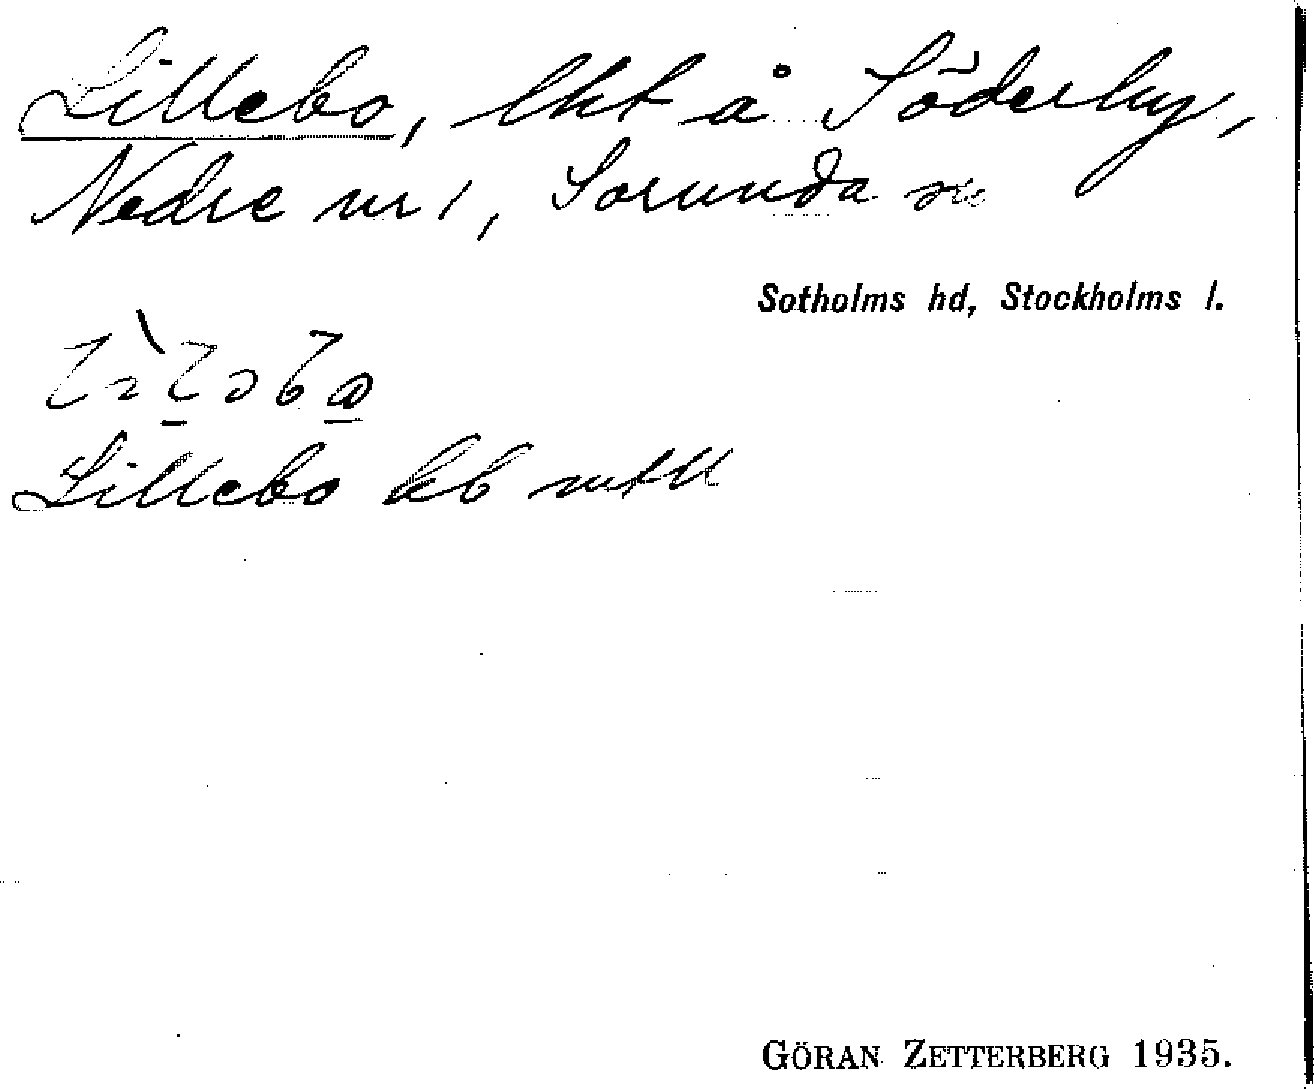 Lillebo, lht å Söderby,
Nedre nr 1, Sorunda sn
Sotholms hd, Stockholms l.
Lillebo kb
GÖRAN ZETTERBERG 1935.